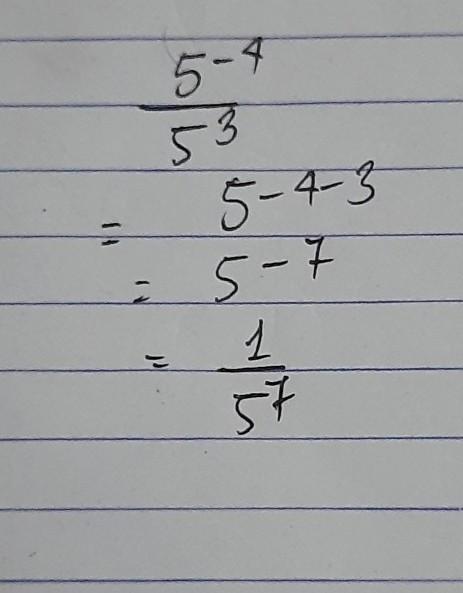 5⁻⁴
5³
= 5⁻⁴⁻³
= 5⁻⁷
= 1
5⁷